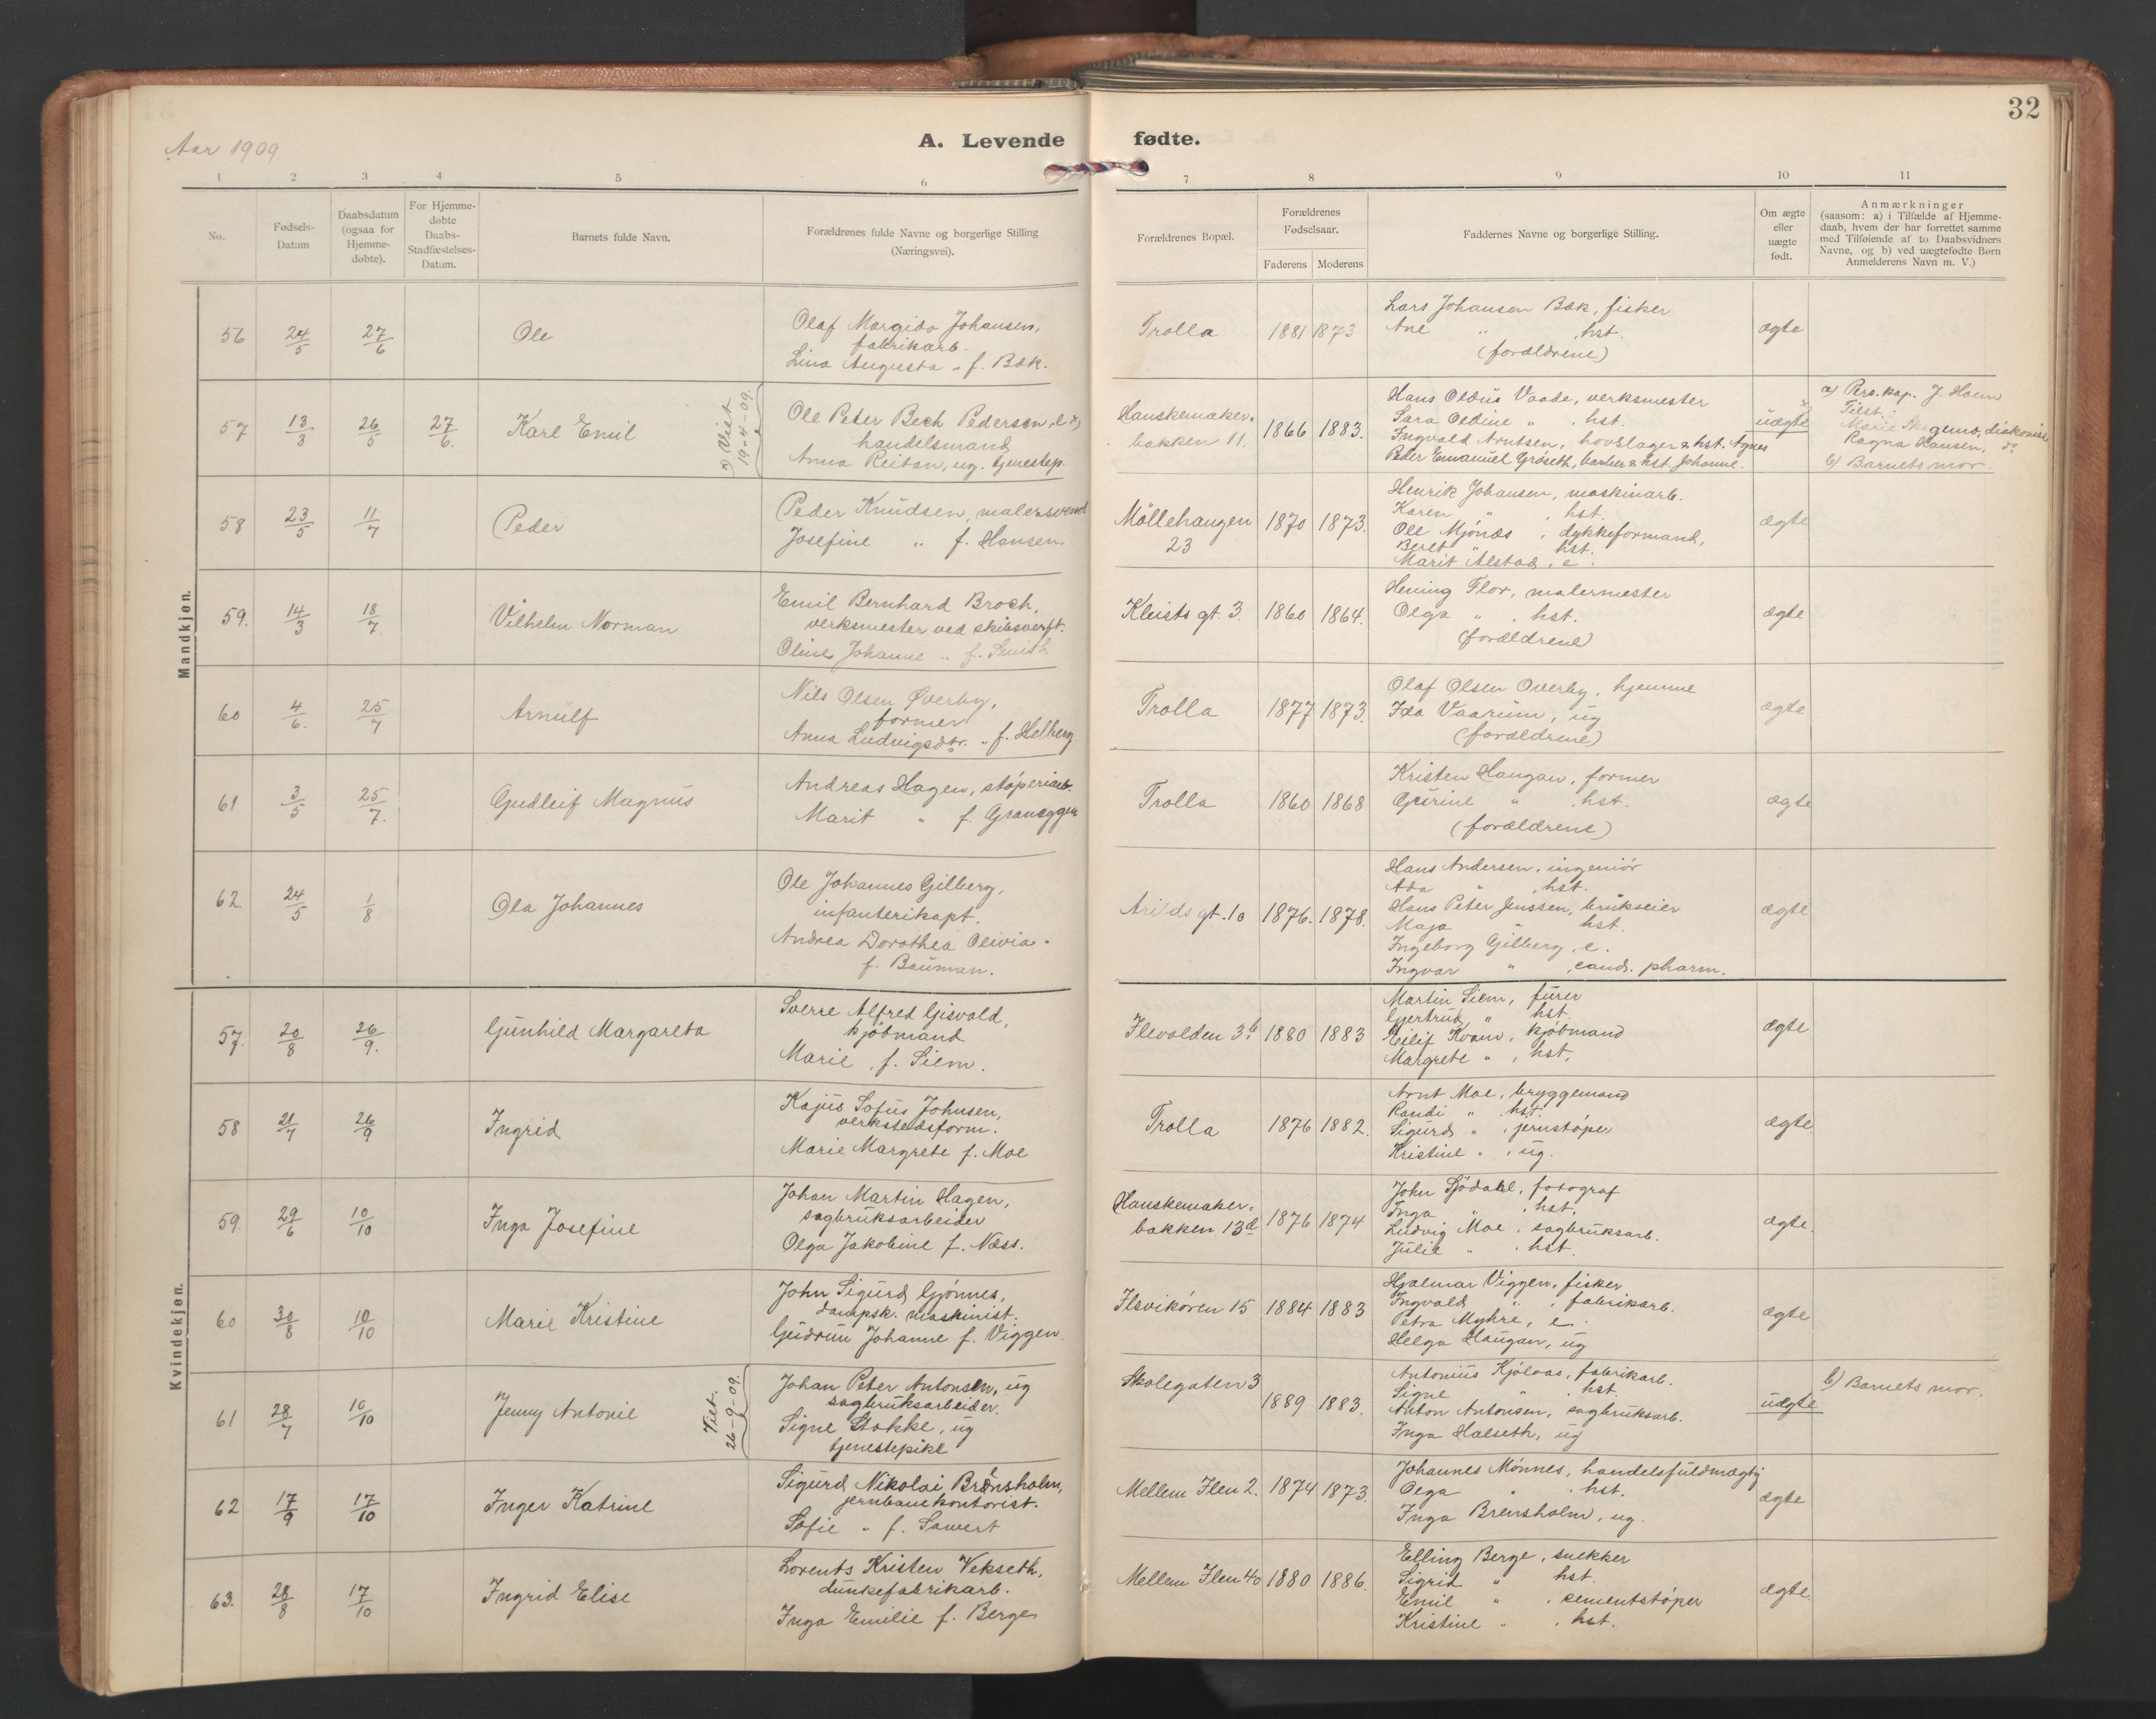 32
Aar 1909.
A. Levende fødte.
1 2 3 4 5 6 7 8 9 10 11
No.
Fødsels-
Datum
Daabsdatum
(ogsaa for
Hjemme-
døbte).
For Hjemme-
døbte
Daabs-
Stadfæstelses-
Datum.
Barnets fulde Navn.
Forældrenes fulde Navne og borgerlige Stilling
(Næringsvei).
Forældrenes Bopæl.
Forældrenes
Fødselsaar.
Faderens Moderens
Faddernes Navne og borgerlige Stilling.
Om ægte
eller
uægte
født.
Anmærkninger
(saasom: a) i Tilfælde af Hjemme-
daab, hvem der har forrettet samme
med Tilføiende af to Daabsvidners
Navne, og b) ved uægtefødte Børn
Anmelderens Navn m. V.)
Mandkjøn.
56 24/5 27/6 Ole
Olaf Margido Johansen,
fabrikarb.
Lina Augusta " f. Bæk.
Trolla 1881 1873
Lars Johansen Bæk, fisker
Ane " , hst.
(forældrene)
ægte
57 13/3 26/5 27/6. Karl Emil
x) Tilst.
19-4-09.
Ole Peter Bech Pedersen, x)
handelsmand
Anna Reitan, ug. tjenestep.
Hanskemaker-
bakken 11. 1866 1883.
Hans Oldus Vaade, verksmester
Sara Oldine " . hst.
Ingvald Arntsen, hovslager & hst. Agnes
Peder Emanuel Gröseth, barber & hst. Johanne.
uægte
a) Pers.kap. J. Holm
Tilst.:
Marie Skagemo, diakonisse
Ragna Hansen, do
b) Barnets mor.
58 23/5 11/7 Peder
Peder Knudsen, malersvend
Josefine " f. Hansen.
Möllehaugen
23 1870 1873.
Henrik Johansen, maskinarb.
Karen " , hst.
Ole Mjönæs , dykkeformand,
Beret " hst.
Marit Alstad, e.
ægte
59. 14/3 18/7. Vilhelm Norman
Emil Bernhard Broch,
verksmester ved skibsverft.
Oline Johanne " f. Smith
Kleists gt. 3. 1860 1864.
Hening Flor, malermester
Olga " , hst.
(forældrene)
ægte
60 4/6. 25/7 Arnulf
Nils Olsen Øverby,
former
Anna Ludvigsdtr. " f. Helberg
Trolla 1877 1873.
Olaf Olsen Overby, hjemme
Ida Vaarum, ug
(forældrene)
ægte
61 3/5 25/7. Gudleif Magnus
Andreas Hagen, stöperiarb.
Marit " f. Granøggen
Trolla 1860 1868
Kristen Haugan, former
Gurine " , hst.
(forældrene)
ægte
62 24/5 1/8 Ola Johannes
Ole Johannes Gilberg,
infanterikapt.
Andrea Dorothea Olivia "
f. Bauman.
Arilds gt. 10 1876. 1878.
Hans Andersen, ingeniör
Ada " , hst.
Hans Peter Jenssen, brukseier
Maja " hst.
Ingeborg Gilberg, e.
Ingvar " , cand. pharm.
ægte
Kvindekjøn.
57. 20/8 26/9. Gunhild Margareta
Sverre Alfred Gisvold,
kjöbmand
Marie , f. Siem.
Ilevolden 3b. 1880 1883
Martin Siem, furer
Gjertrud " hst.
Eilif Kvam, kjöbmand
Margrete " , hst.
ægte
58 21/7 26/9 Ingrid
Kajus Sofus Johnsen,
verkstedsform.
Marie Margrete f. Moe
Trolla 1876 1882.
Arnt Moe, bryggemand
Randi " , hst.
Sigurd " , jernstöper
Kristine " , ug.
ægte.
59. 29/6 10/10 Inga Josefine
Johan Martin Hagen,
sagbruksarbeider
Olga Jakobine f. Næss.
Hanskemaker-
bakken 13d 1876 1874
John Sjödahl, fotograf
Inga " , hst.
Ludvig Moe, sagbruksarb.
Julie " , hst.
ægte.
60 30/8 10/10 Marie Kristine
John Sigurd Gjönnes,
dampsk. maskinist.
Gudrun Johanne f. Viggen.
Ilsvikören 15 1884 1883
Hjalmar Viggen, fisker
Ingvald " , fabrikarb.
Petra Myhre, e.
Helga Haugan, ug
ægte
61 28/7 10/10 Jenny Antonie
Tilst.
26-9-09.
Johan Peter Antonsen, ug
sagbruksarbeider.
Signe Stokke, ug
tjenestepike
Skolegaten 3 1889 1883.
Antonius Kjölaas, fabrikarb.
Signe " , hst.
Anton Antonsen, sagbruksarb.
Inga Halseth, ug
uægte
b) Barnets mor.
62 17/9 17/10 Inger Katrine
Sigurd Nikolai Brensholm,
jernbanekontorist.
Sofie " f. Sawert
Mellem Ilen 2. 1874 1873.
Johannes Mönnes, handelsfuldmægtig
Olga " , hst.
Inga Brensholm, ug.
ægte
63. 28/8 17/10 Ingrid Elise
Lorents Kristen Vekseth,
dunkefabrikarb.
Inga Emilie f. Berge
Mellem Ilen 40 1880 1886.
Elling Berge, snekker
Sigrid " hst.
Emil " , cementstöper
Kristine " , hst.
ægte.